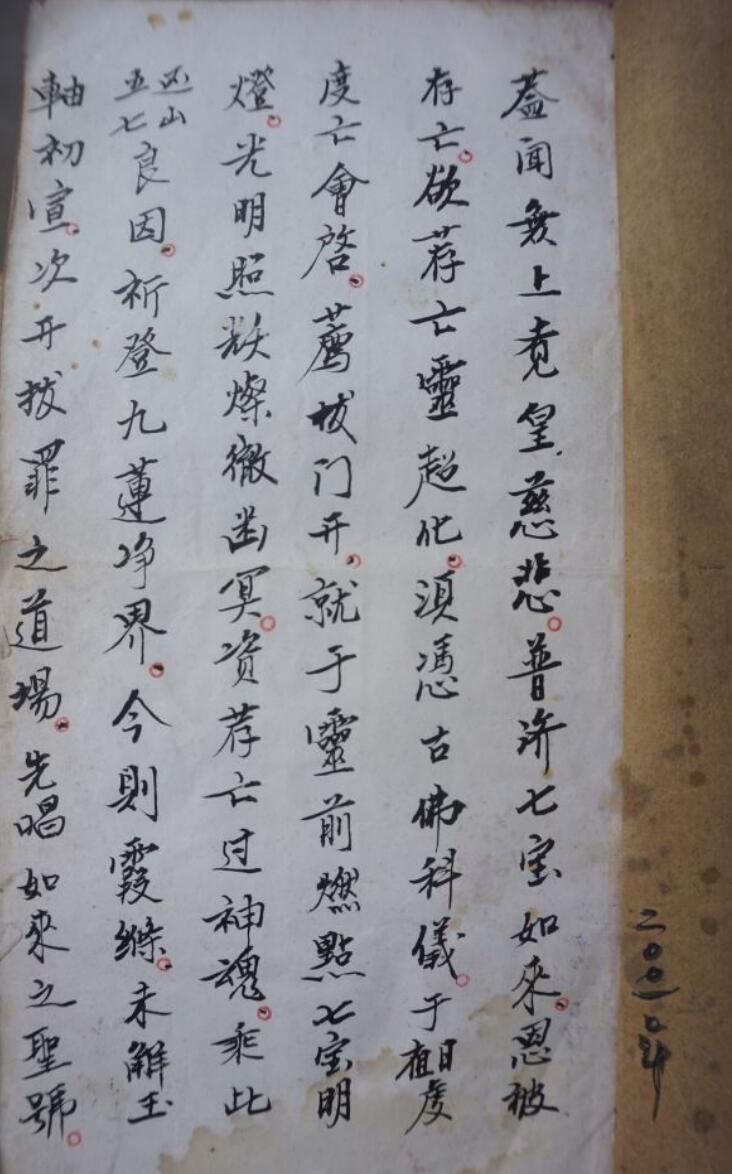 二〇〇一〇年
蓋闻無上覚皇慈悲。普济七宝如來。恩被
存亡。欲荐亡靈超化。須憑古佛科儀。于虔
度亡會啓。薦拔门开。就于靈前燃點七宝明
燈。光明照燦徹幽冥。资荐亡过神魂。乘此
五七良因。祈登九蓮净界。今則霞縧。未解玉
軸初宣。次开拔罪之道場。先唱如來之聖號。